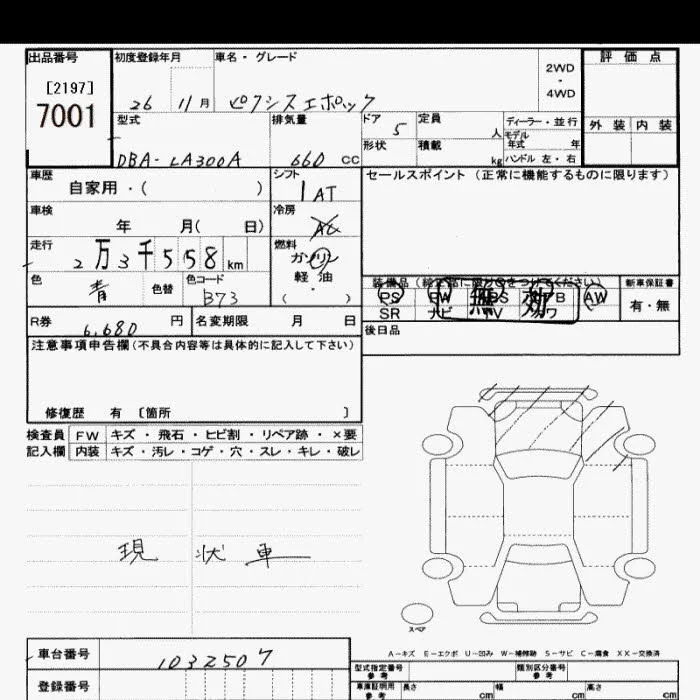 出品番号 初度登録年月 車名・グレード 評価点
[2197]
7001
26 11月 ピクシスエポック
2WD
・
4WD
外装 内装
型式 排気量 ドア 定員 ディーラー・並行
5 人 モデル年式 年
形状 積載 kg ハンドル 左・右
DBA-LA300A 660 CC
車歴 シフト セールスポイント (正常に機能するものに限ります)
自家用・( ) 1 AT
車検 冷房
年 月( 日) AC
走行 燃料
2万3千558km ガソリン
軽油
・
( )
色 色替 色コード
青 B73
装備品(純正品に限り○をつけてください) 新車保証書
PS PW AB AW 有・無
SR ナビ TV
無効
R券 6,680 円 名変期限 月 日 後日品
注意事項申告欄(不具合内容等は具体的に記入して下さい)
修復歴 有 〔箇所 〕
検査員 FW キズ・飛石・ヒビ割・リペア跡・×要
記入欄 内装 キズ・汚レ・コゲ・穴・スレ・キレ・破レ
現状車
スペア
A-キズ E-エクボ U-凹み W-補修跡 S-サビ C-腐食 XX-交換済
車台番号 1032507
型式指定番号 参考 類別区分番号 参考
登録番号 車庫証明用 参考 長さ cm 幅 cm 高さ cm